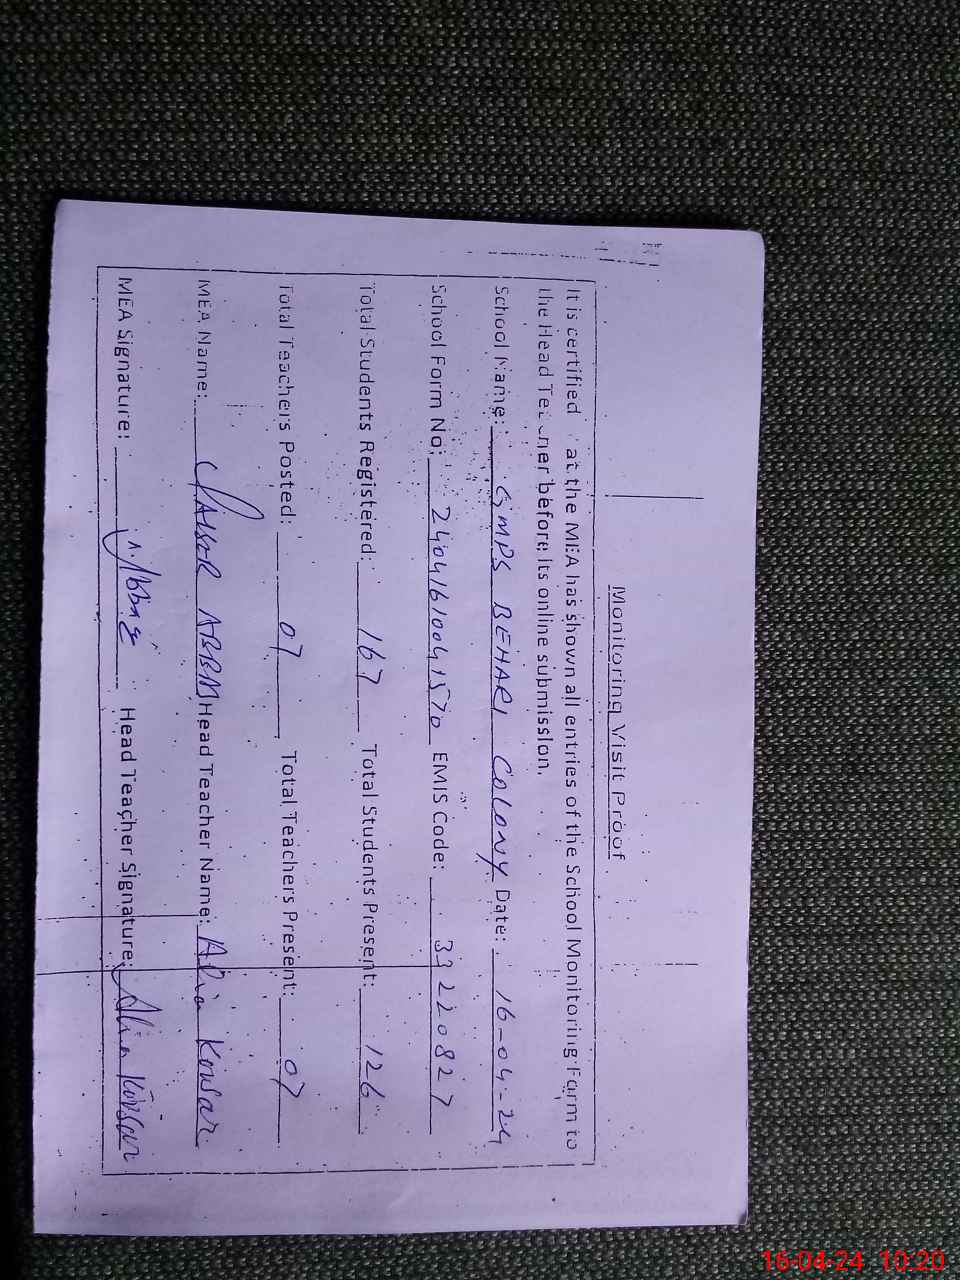 Monitoring Visit Proof
It is certified at the MEA has shown all entries of the School Monitoring Form to
the Head Teacher before its online submission.
School Name: GMPS BEHARI COLONY Date: 16-04-24
School Form No: 24041610041570 EMIS Code: 33220827
Total Students Registered: 167 Total Students Present: 126
Total Teachers Posted: 07 Total Teachers Present: 07
MEA Name: QAISER ABBAS Head Teacher Name: Alia Kousar
MEA Signature: Q. Abbas Head Teacher Signature: Alia Kousar
16-04-24 10:20